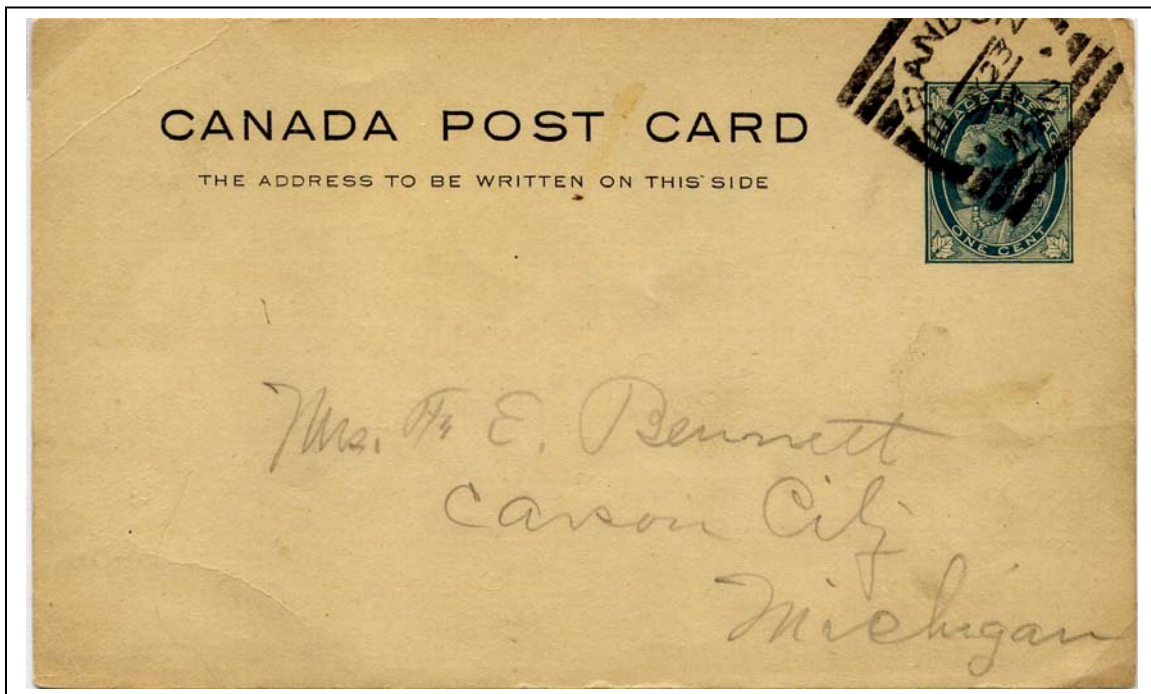 CANADA POST CARD
THE ADDRESS TO BE WRITTEN ON THIS SIDE
BRANDON
23
CANADA POSTAGE
ONE CENT
Mrs. F. E. Bennett
Carson City
Michigan